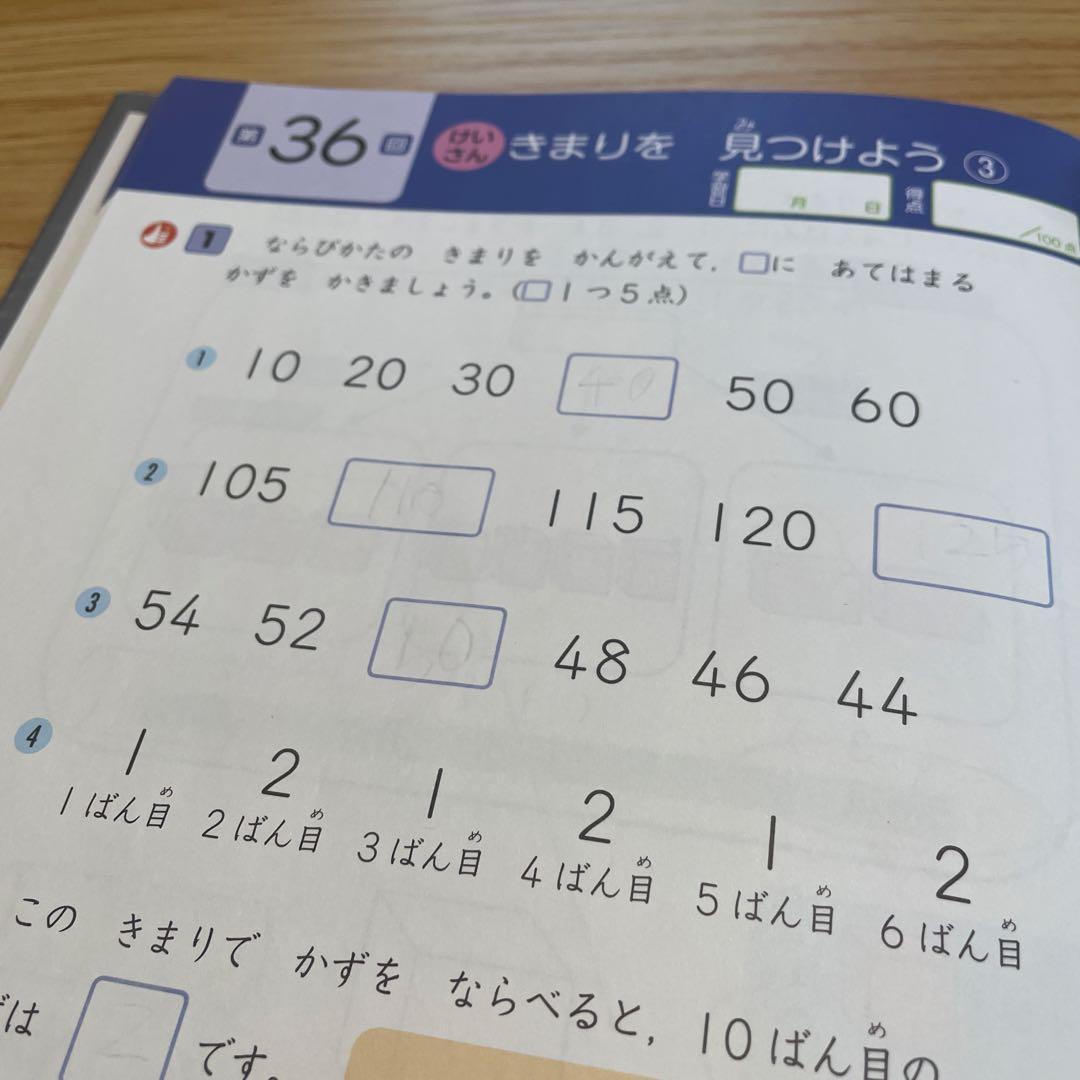 第36回 けいさん きまりを 見つけよう ③
学習日 月 日 得点 /100点
1 ならびかたの きまりを かんがえて、□に あてはまる
かずを かきましょう。(□1つ5点)
1 10 20 30 40 50 60
2 105 110 115 120 125
3 54 52 50 48 46 44
4 1 2 1 2 1 2
1ばん目 2ばん目 3ばん目 4ばん目 5ばん目 6ばん目
この きまりで かずを ならべると、10ばん目の
は 2 です。